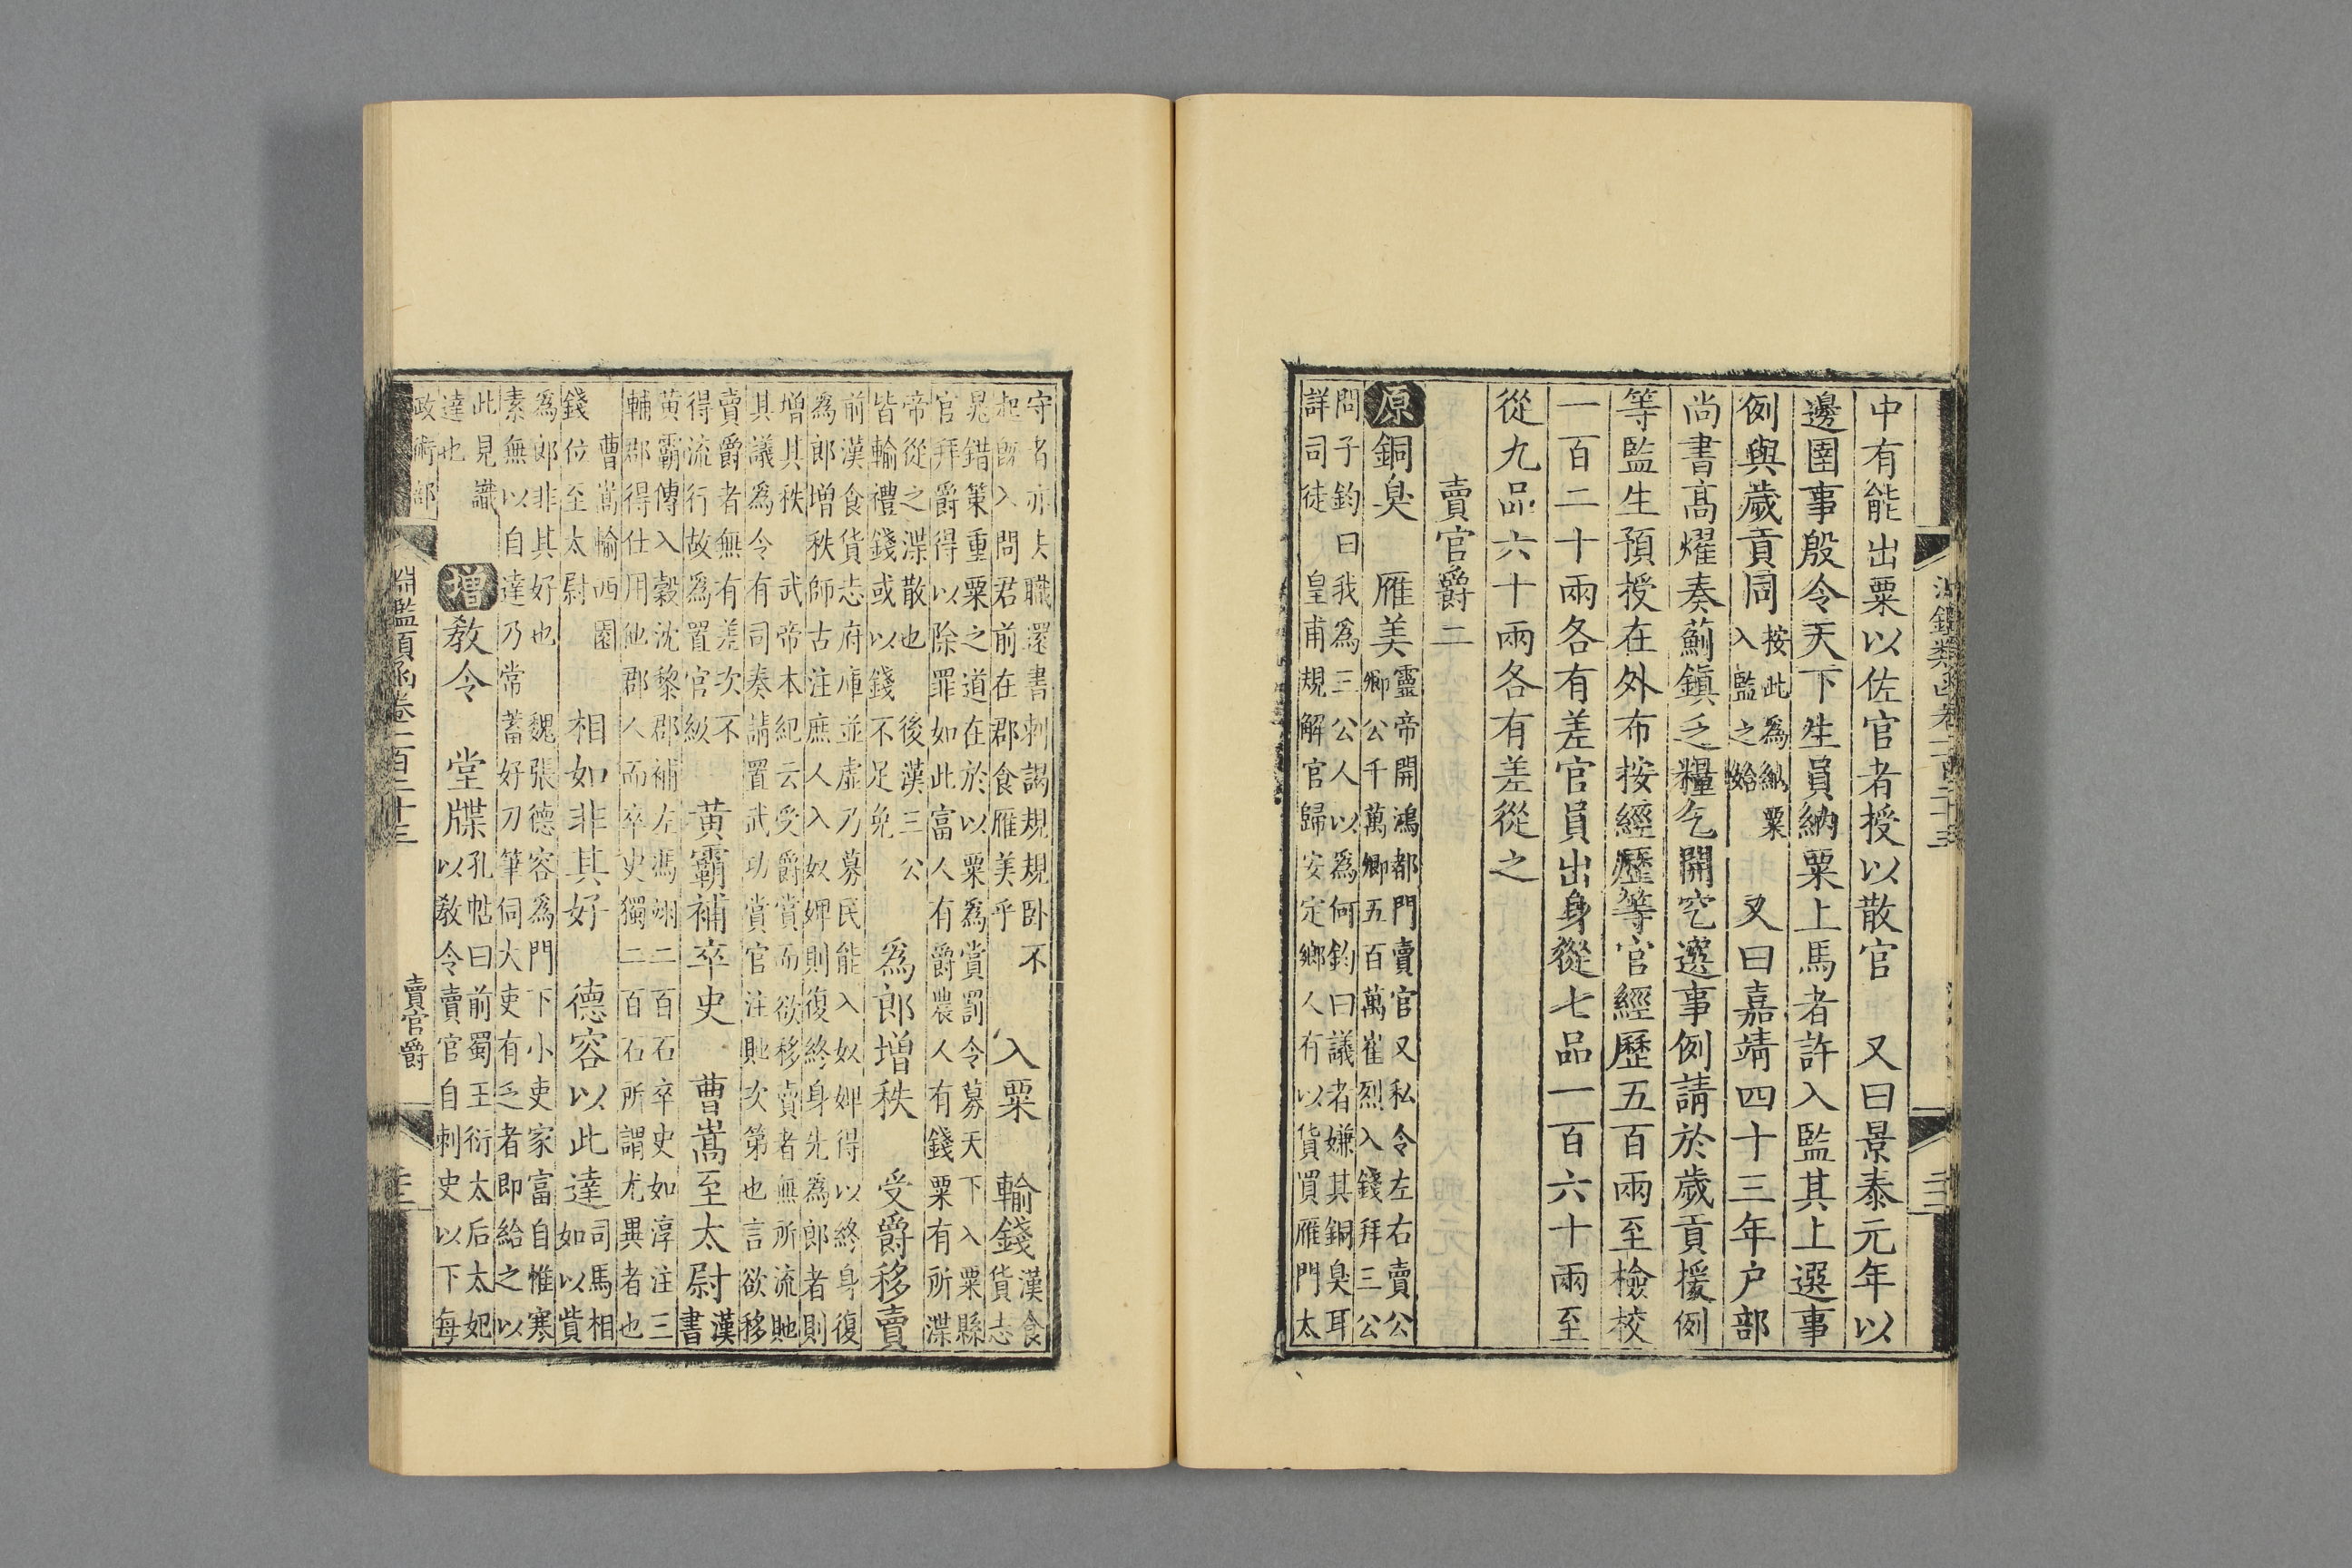 中有能出粟以佐官者授以散官　又曰景泰元年以
邊圉事殷令天下生員納粟上馬者許入監其上選事
例與歲貢同按此為納粟入監之始　又曰嘉靖四十三年户部
尚書高燿奏薊鎮乏糧乞開穵選事例請於歲貢援例
等監生預授在外布按經歷等官經歷五百兩至檢校
一百二十兩各有差官員出身從七品一百六十兩至
從九品六十兩各有差從之
賣官爵二
原銅臭　雁美靈帝開鴻都門賣官又私令左右賣公
卿公千萬卿五百萬崔烈入錢拜三公
問子鈞曰我為三公人以為何鈞曰議者嫌其銅臭耳
詳司徒　皇甫規解官歸安定鄉人有以貨買雁門太
守者亦去職還書刺謁規規卧不
起既入問君前在郡食雁美乎　入粟　輸錢漢食
貨志
晁錯策重粟之道在於以粟為賞罰令募天下入粟縣
官拜爵得以除罪如此富人有爵農人有錢粟有所渫
帝從之渫散也　後漢三公
皆輸禮錢或以錢不足免　為郎增秩　受爵移賣
前漢食貨志府庫並虛乃募民能入奴婢得以終身復
為郎增秩師古注庶人入奴婢則復終身先為郎者則
增其秩　武帝本紀云受爵賞而欲移賣者無所流貤
其議為令有司奏請置武功賞官注貤次第也言欲移
賣爵者無有差次不
得流行故為置官級　黄霸補卒史　曹嵩至太尉漢
書
黄霸傳入穀沈黎郡補左馮翊二百石卒史如淳注三
輔郡得仕用他郡人而卒史獨二百石所謂尤異者也
曹嵩輸西園
錢位至太尉　相如非其好　德容以此達司馬相
如以貲
為郎非其好也　魏張德容為門下小吏家富自惟寒
素無以自達乃常蓄好刀筆伺大吏有乏者即給之以
此見識
達也　增教令　堂牒孔帖曰前蜀王衍太后太妃
以教令賣官自刺史以下每
政術部
淵鑑類函卷一百二十三
賣官爵